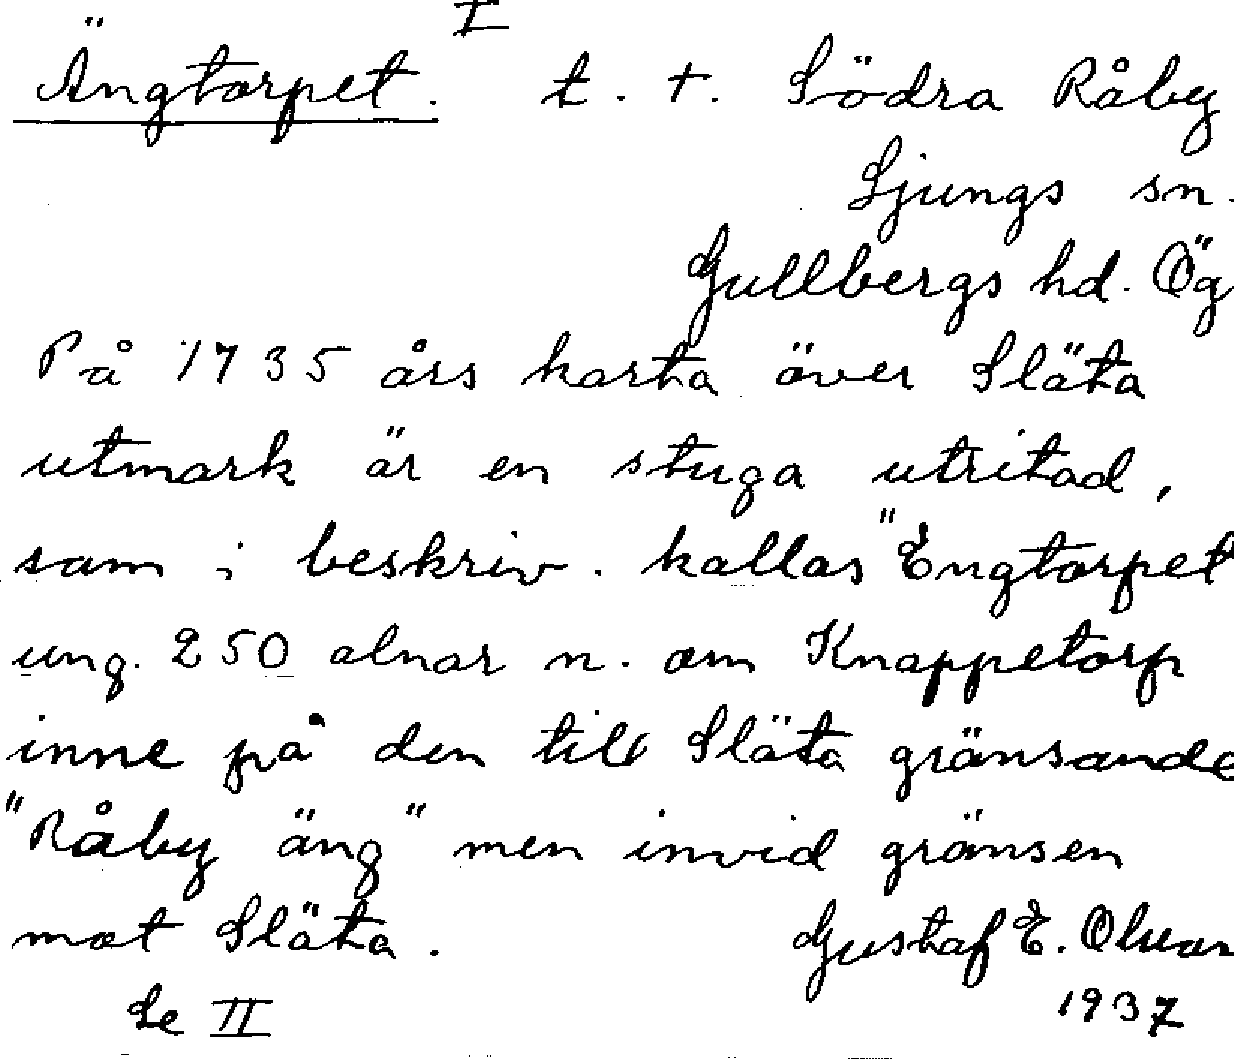 I
Ängtorpet. t. t. Södra Råby
Ljungs sn.
Gullbergs hd. Ög
På 1735 års karta över Släta
utmark är en stuga utritad,
som i beskriv. kallas "Engtorpet
ung. 250 alnar n. om Knappetorp
inne på den till Släta gränsande
"Råby äng" men invid gränsen
mot Släta. Gustaf E.
Se II 1937